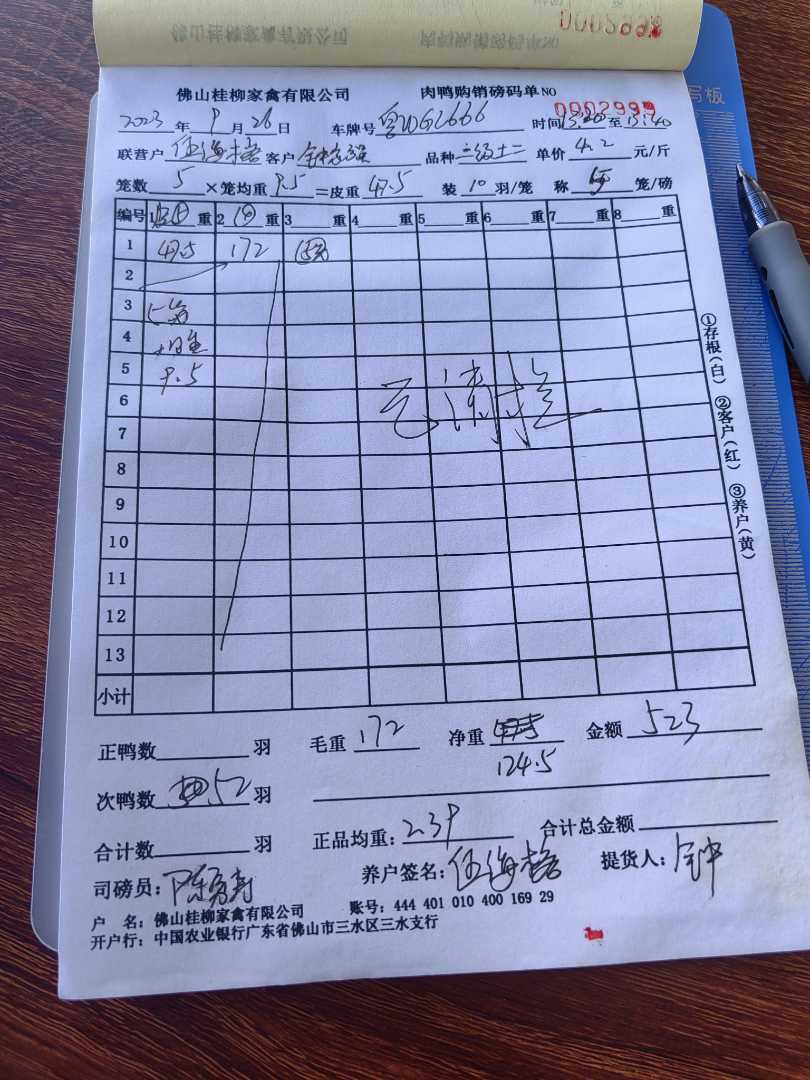 佛山桂柳家禽有限公司 肉鸭购销磅码单 NO 0002999
2023 年 9 月 26 日 车牌号 时间 至 15:40
联营户 伍海搭 客户 品种 单价 4.2 元/斤
笼数 5 ×笼均重 9.5 =皮重 47.5 装 10 羽/笼 称 笼/磅
编号 1 重 2 重 3 重 4 重 5 重 6 重 7 重 8 重
1 47.5 172
2
3
4
5 9.5
6
7
8
9
10
11
12
13
小计
①存根(白) ②客户(红) ③养户(黄)
正鸭数 羽 毛重 172 净重 124.5 金额 523
次鸭数 52 羽
合计数 羽 正品均重: 2.39 合计总金额
司磅员: 养户签名: 提货人: 钟
户 名: 佛山桂柳家禽有限公司 账号: 444 401 010 400 169 29
开户行: 中国农业银行广东省佛山市三水区三水支行